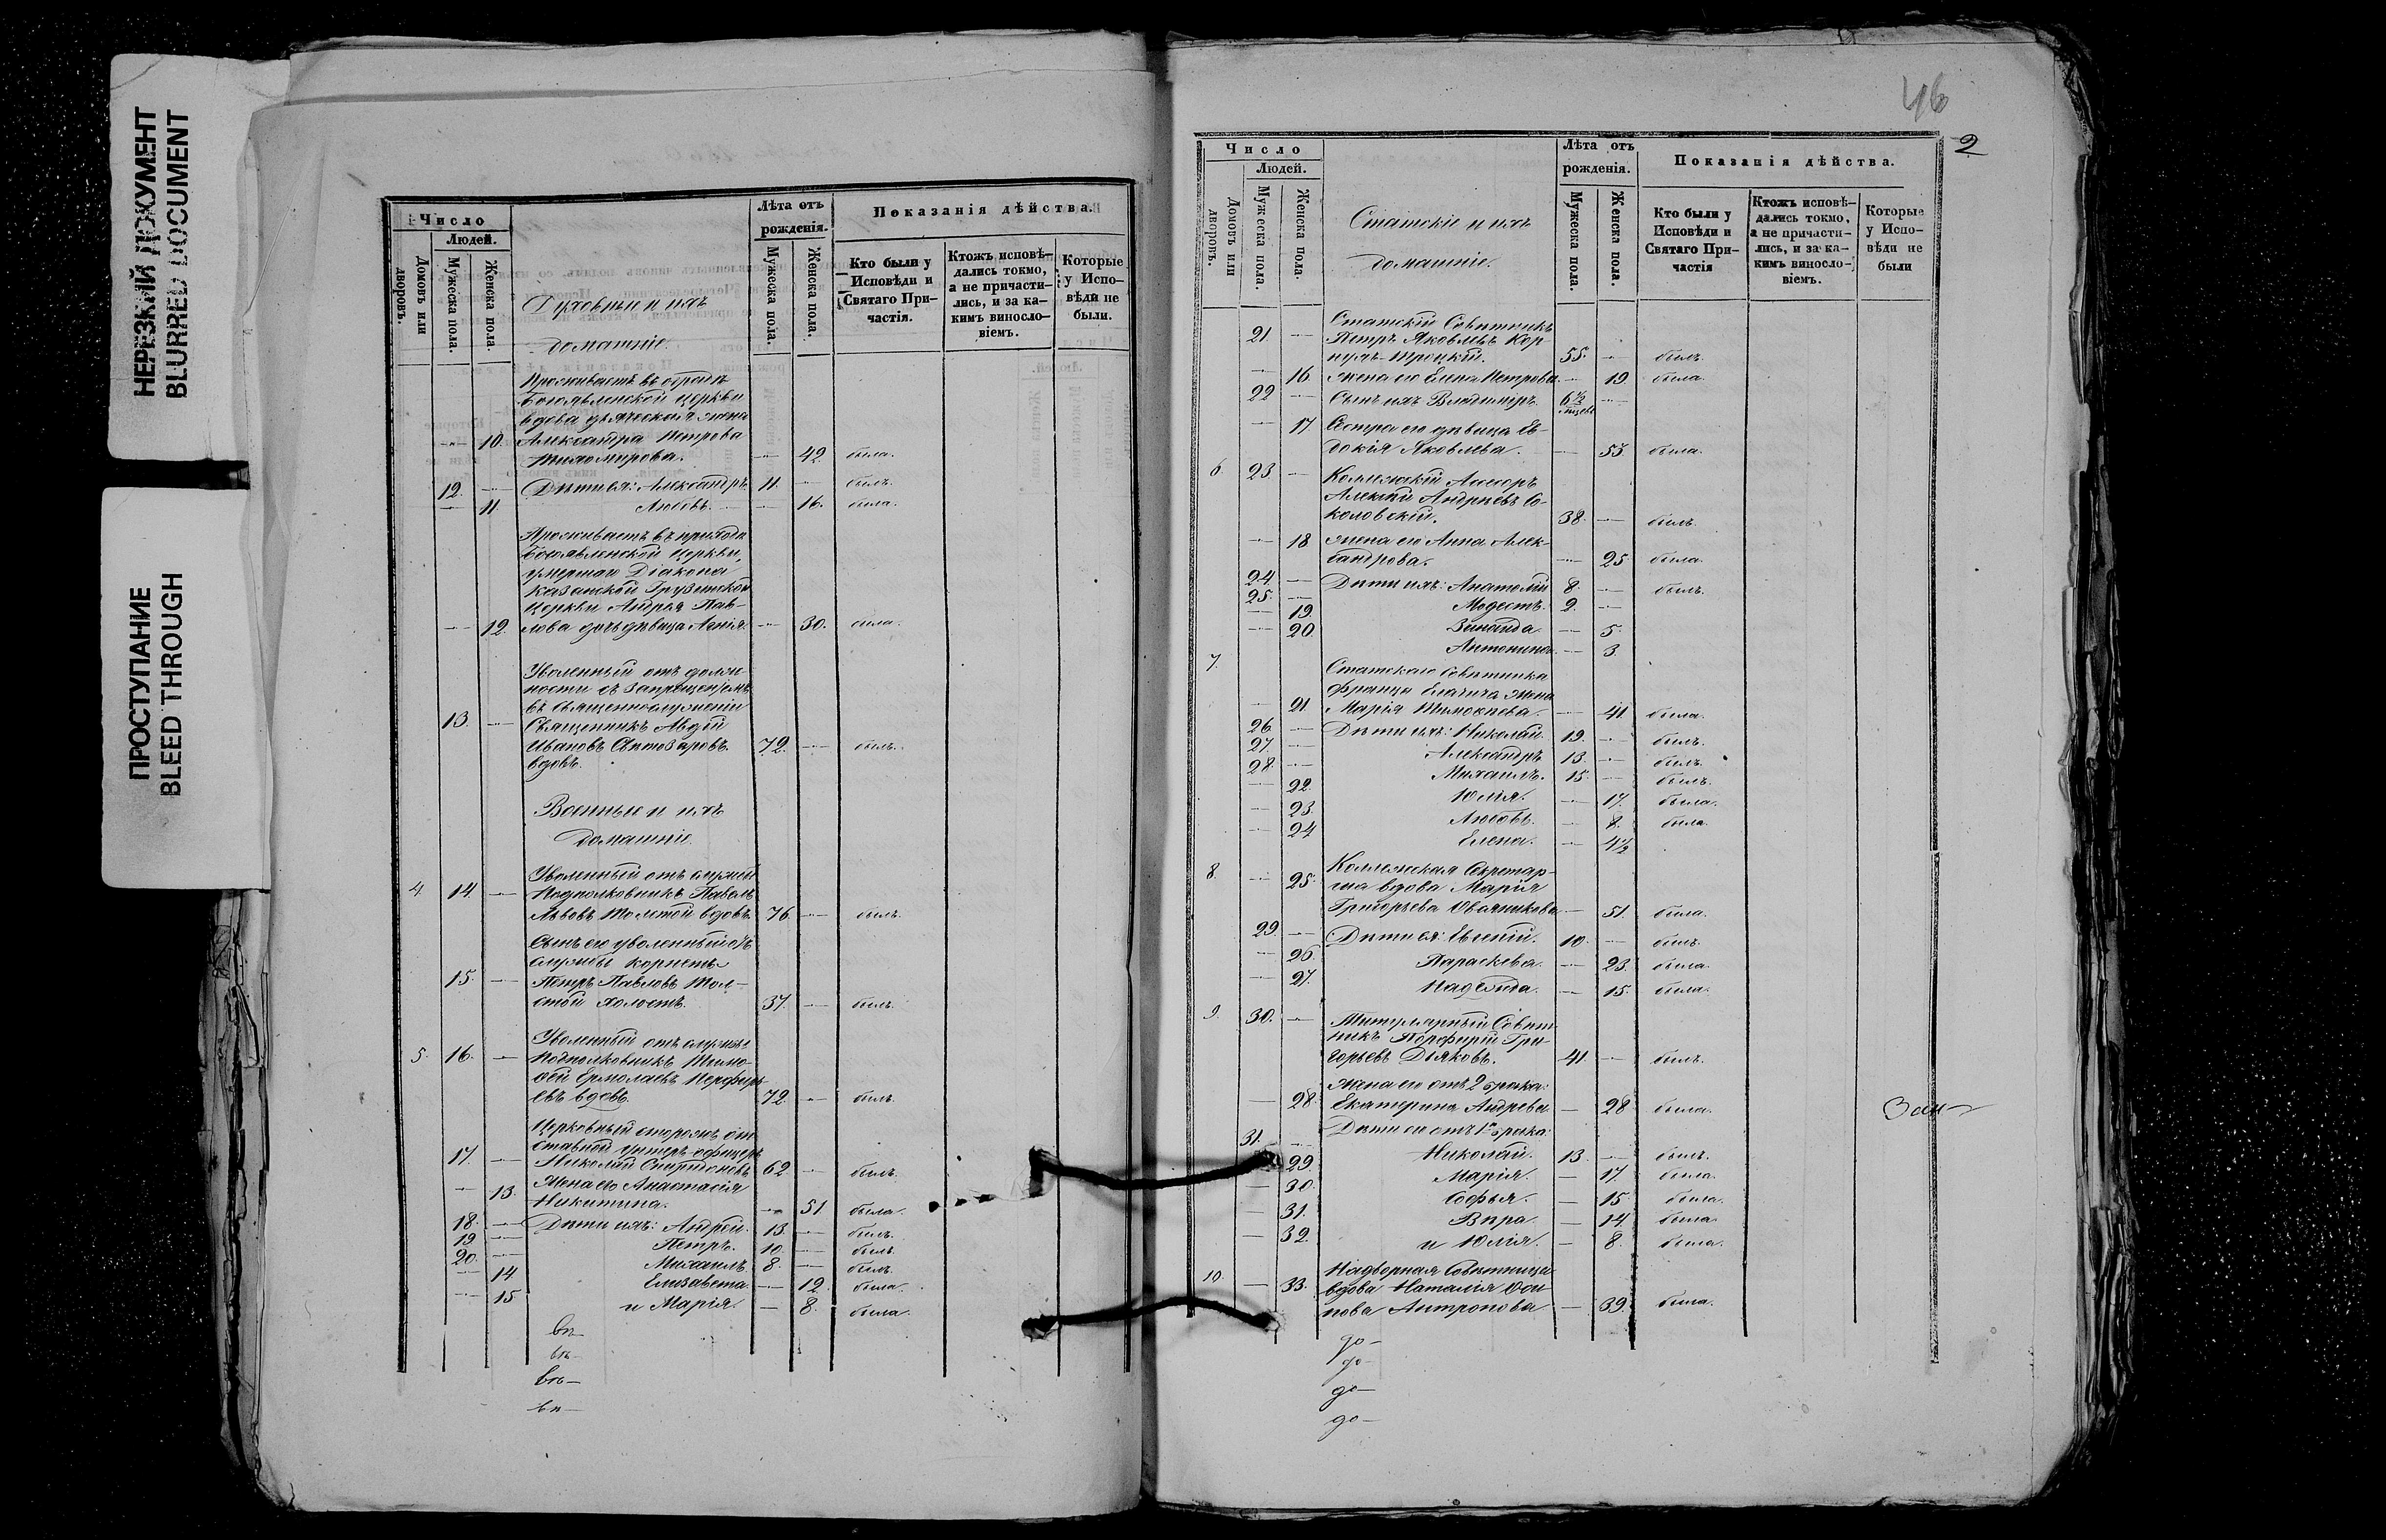 НЕРЕЗКИЙ ДОКУМЕНТ
BLURRED DOCUMENT
ПРОСТУПАНИЕ
BLEED THROUGH
Число
Людей.
Домовъ или дворовъ.
Мужеска пола.
Женска пола.
Духовные и ихъ
домашніе
Лѣта отъ
рожденія.
Мужеска пола.
Женска пола.
Показанія дѣйства.
Кто были у
Исповѣди и
Святаго При-
частія.
Ктожъ исповѣ-
дались токмо,
а не причасти-
лись, и за ка-
кимъ винословіемъ.
Которые
у Испо-
вѣди не
были.
Проживаетъ въ
Богоявленской Церкви
вдова дьяческая жена
10. Александра Петрова
Тихомирова. 42. была.
12. Дѣти ея: Александръ 11. былъ.
11 Любовь. 16. была.
Проживаетъ въ приходѣ
Богоявленской Церкви,
умершаго Діакона
Казанской Грузинской
Церкви Андрея Пав-
12. лова дочь дѣвица 30. была.
Уволенный отъ долж-
ности съ запрещеніемъ
въ священнослуженіи
13. Священникъ Авдій
Ивановъ Свѣтозаровъ 72. былъ.
вдовъ.
Военные и ихъ
домашніе.
Уволенный отъ службы
4 14. Подполковникъ Павелъ
Львовъ Толстой вдовъ. 76. былъ.
Сынъ его уволенный отъ
службы корнетъ
15. Петръ Павловъ Тол-
стой холостъ. 37. былъ.
Уволенный отъ службы
5. 16. Подполковникъ Тимо-
фей Ермолаевъ Перфиль-
евъ вдовъ. 72. былъ.
Церковный сторожъ от-
ставной унтеръ-офицеръ
17. Николай Спиридоновъ 62. былъ.
13. Жена его Анастасія
Никитина. 51 была.
18. Дѣти ихъ: Андрей. 13. былъ.
19 Петръ. 10. былъ.
20. Михаилъ. 8. былъ.
14 Елизавета. 12. была.
15 и Марія. 8. была.
вѣ-
вѣ-
вѣ-
вѣ-
46
2
Число
Людей.
Домовъ или дворовъ.
Мужеска пола.
Женска пола.
Статскіе и ихъ
домашніе.
Лѣта отъ
рожденія.
Мужеска пола.
Женска пола.
Показанія дѣйства.
Кто были у
Исповѣди и
Святаго При-
частія
Ктожъ исповѣ-
дались токмо,
а не причасти-
лись, и за ка-
кимъ винословіемъ.
Которые
у Испо-
вѣди не
были
Статскій Совѣтникъ
21 Петръ Яковлевъ Кор-
нухъ-Троцкій. 55. былъ.
16. жена его Елена Петрова 19. была.
22 Сынъ ихъ Владиміръ. 6½
17 Сестра его дѣвица Ев-
докія Яковлева. 55. была.
6. 23. Коллежскій Ассесоръ
Алексѣй Андреевъ Со-
коловскій. 38. былъ.
18 жена его Анна Алек-
сандрова. 25 была.
24. Дѣти ихъ: Анатолій 8. былъ.
25. Модестъ. 2.
19. Зинаида. 5.
20. Антонина. 3.
7. Статскаго Совѣтника
Франца Елачича жена
21 Марія Тимофеева. 41 была.
26. Дѣти ихъ: Николай. 19. былъ.
27. Александръ 13. былъ.
28. Михаилъ. 15. былъ.
22. Юлія. 17. была.
23. Любовь. 8. была.
24 Елена. 4½
8. Коллежская Секретар-
25. ша вдова Марія
Григорьева Овчинникова 51. была.
29. Дѣти ея: Евгеній. 10. былъ.
26. Параскева. 23. была.
27. Надежда. 15. была.
9. 30. Титулярный Совѣт-
никъ Порфирій Гри-
горьевъ Дьяковъ. 41. былъ.
Жена его отъ 2 брака:
28. Екатерина Андреева 28 была.
Зам-
Дѣти его отъ 1го брака:
31. Николай. 13. былъ.
29. Марія. 17. была.
30. Софья. 15 была.
31. Вѣра. 14. была.
32. и Юлія. 8. была.
10. Надворная Совѣтница
33. вдова Наталія Оси-
пова Антропова 39. была.
до-
до-
до-
до-